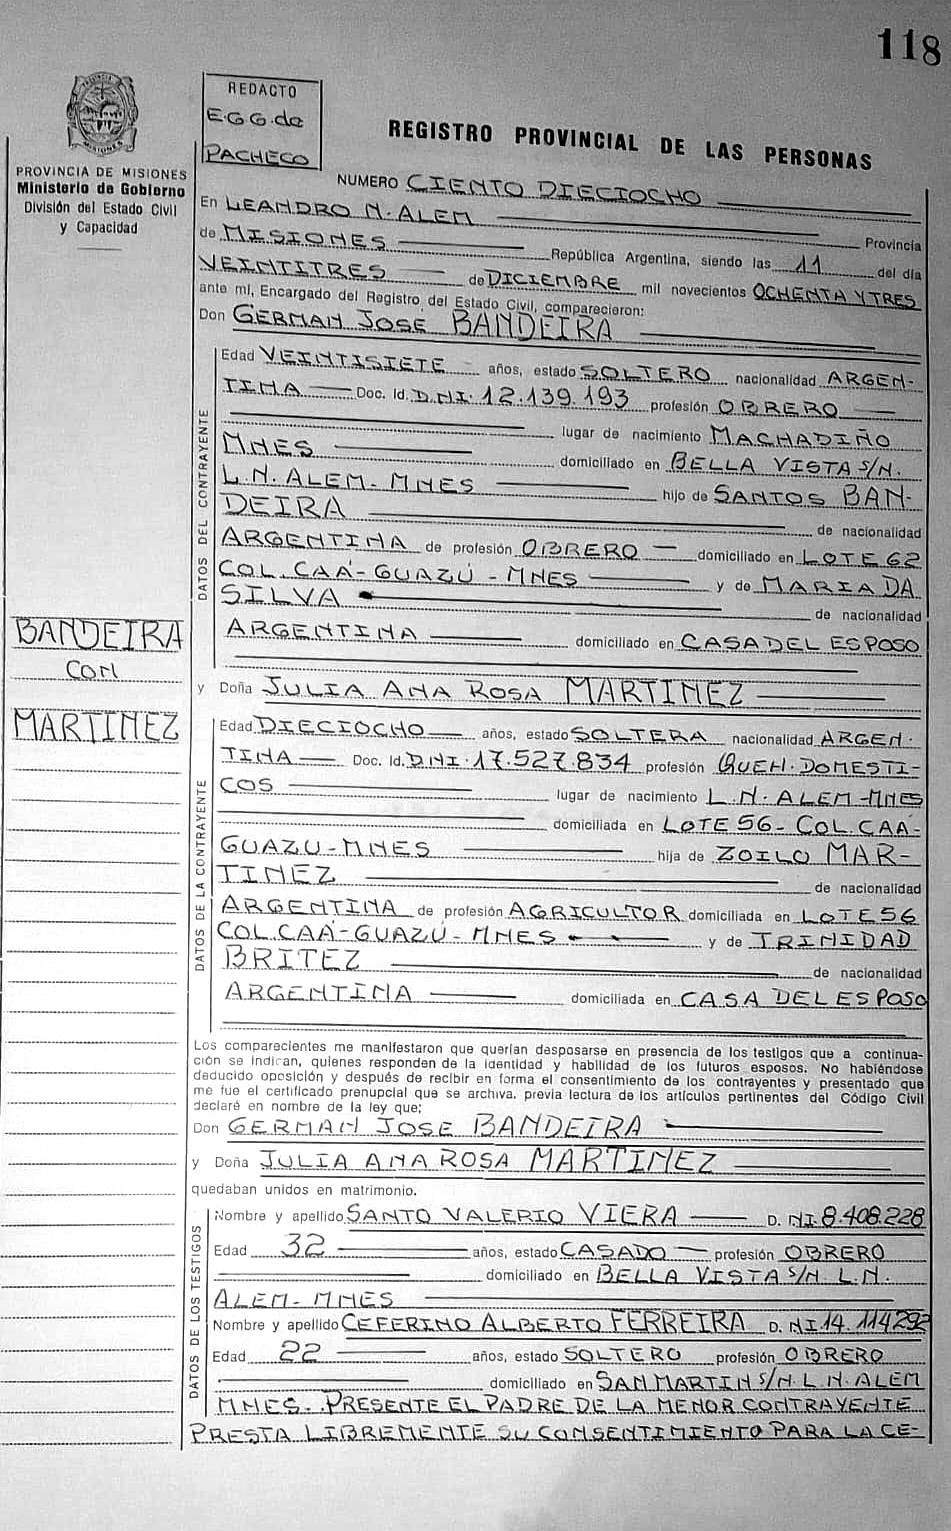 118
REDACTO
E.G G. de
PACHECO
REGISTRO PROVINCIAL DE LAS PERSONAS
PROVINCIA DE MISIONES
Ministerio de Gobierno
División del Estado Civil
y Capacidad
NUMERO CIENTO DIECIOCHO
En LEANDRO N. ALEM Provincia
de MISIONES República Argentina, siendo las 11 del día
VEINTITRES de DICIEMBRE mil novecientos OCHENTA Y TRES
ante mí, Encargado del Registro del Estado Civil, comparecieron:
Don GERMAN JOSÉ BANDEIRA
DATOS DEL CONTRAYENTE
Edad VEINTISIETE años, estado SOLTERO nacionalidad ARGEN-
TINA Doc. Id. D.NI. 12.139.193 profesión OBRERO
lugar de nacimiento MACHADIÑO
MNES domiciliado en BELLA VISTA S/N.
L.N. ALEM - MNES hijo de SANTOS BAN-
DEIRA de nacionalidad
ARGENTINA de profesión OBRERO domiciliado en LOTE 62
COL. CAÁ-GUAZÚ - MNES y de MARIA DA
SILVA de nacionalidad
ARGENTINA domiciliado en CASA DEL ESPOSO
BANDEIRA
CON
MARTINEZ
y Doña JULIA ANA ROSA MARTINEZ
DATOS DE LA CONTRAYENTE
Edad DIECIOCHO años, estado SOLTERA nacionalidad ARGEN-
TINA Doc. Id. D.NI. 17.527.834 profesión QUEH. DOMESTI-
COS lugar de nacimiento L.N. ALEM-MNES
domiciliada en LOTE 56 - COL. CAA-
GUAZU-MNES hija de ZOILO MAR-
TINEZ de nacionalidad
ARGENTINA de profesión AGRICULTOR domiciliada en LOTE 56
COL. CAÁ-GUAZÚ - MNES y de TRINIDAD
BRITEZ de nacionalidad
ARGENTINA domiciliada en CASA DEL ESPOSO
Los comparecientes me manifestaron que querían desposarse en presencia de los testigos que a continua-
ción se indican, quienes responden de la identidad y habilidad de los futuros esposos. No habiéndose
deducido oposición y después de recibir en forma el consentimiento de los contrayentes y presentado que
me fue el certificado prenupcial que se archiva, previa lectura de los artículos pertinentes del Código Civil
declaré en nombre de la ley que;
Don GERMAN JOSE BANDEIRA
y Doña JULIA ANA ROSA MARTINEZ
quedaban unidos en matrimonio.
DATOS DE LOS TESTIGOS
Nombre y apellido SANTO VALERIO VIERA D. NI. 8.408.228
Edad 32 años, estado CASADO profesión OBRERO
domiciliado en BELLA VISTA S/N. L.N.
ALEM - MNES
Nombre y apellido CEFERINO ALBERTO FERREIRA D. NI 14.114292
Edad 22 años, estado SOLTERO profesión OBRERO
domiciliado en SAN MARTIN S/N L.N. ALEM
MNES- PRESENTE EL PADRE DE LA MENOR CONTRAYENTE
PRESTA LIBREMENTE SU CONSENTIMIENTO PARA LA CE-